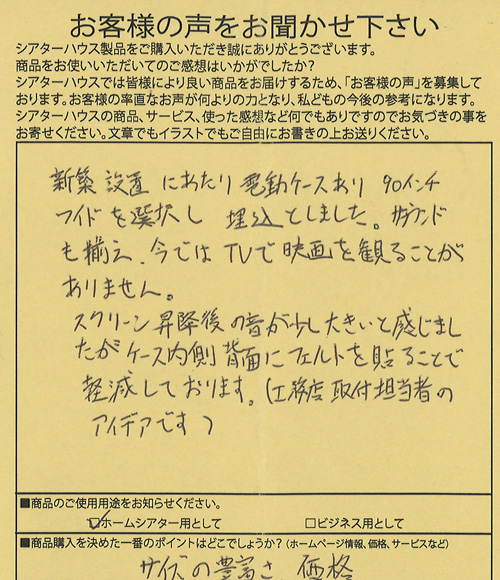 お客様の声をお聞かせ下さい
シアターハウス製品をご購入いただき誠にありがとうございます。
商品をお使いいただいてのご感想はいかがでしたか?
シアターハウスでは皆様により良い商品をお届けするため、「お客様の声」を募集して
おります。お客様の率直なお声が何よりの力となり、私どもの今後の参考になります。
シアターハウスの商品、サービス、使った感想など何でもありですのでお気づきの事を
お寄せください。文章でもイラストでもご自由にお書きの上お送りください。
新築 設置 にあたり 電動ケースあり 90インチ
ワイドを選択し 埋込としました。サラウンド
も揃え、今では TVで映画を観ることが
ありません。
スクリーン昇降後の音が少し大きいと感じまし
たがケース内側背面にフェルトを貼ることで
軽減しております。(工務店取付担当者の
アイデアです)
■商品のご使用用途をお知らせください。
☑ホームシアター用として □ビジネス用として
■商品購入を決めた一番のポイントはどこでしょうか?(ホームページ情報、価格、サービスなど)
サイズの豊富さ 価格